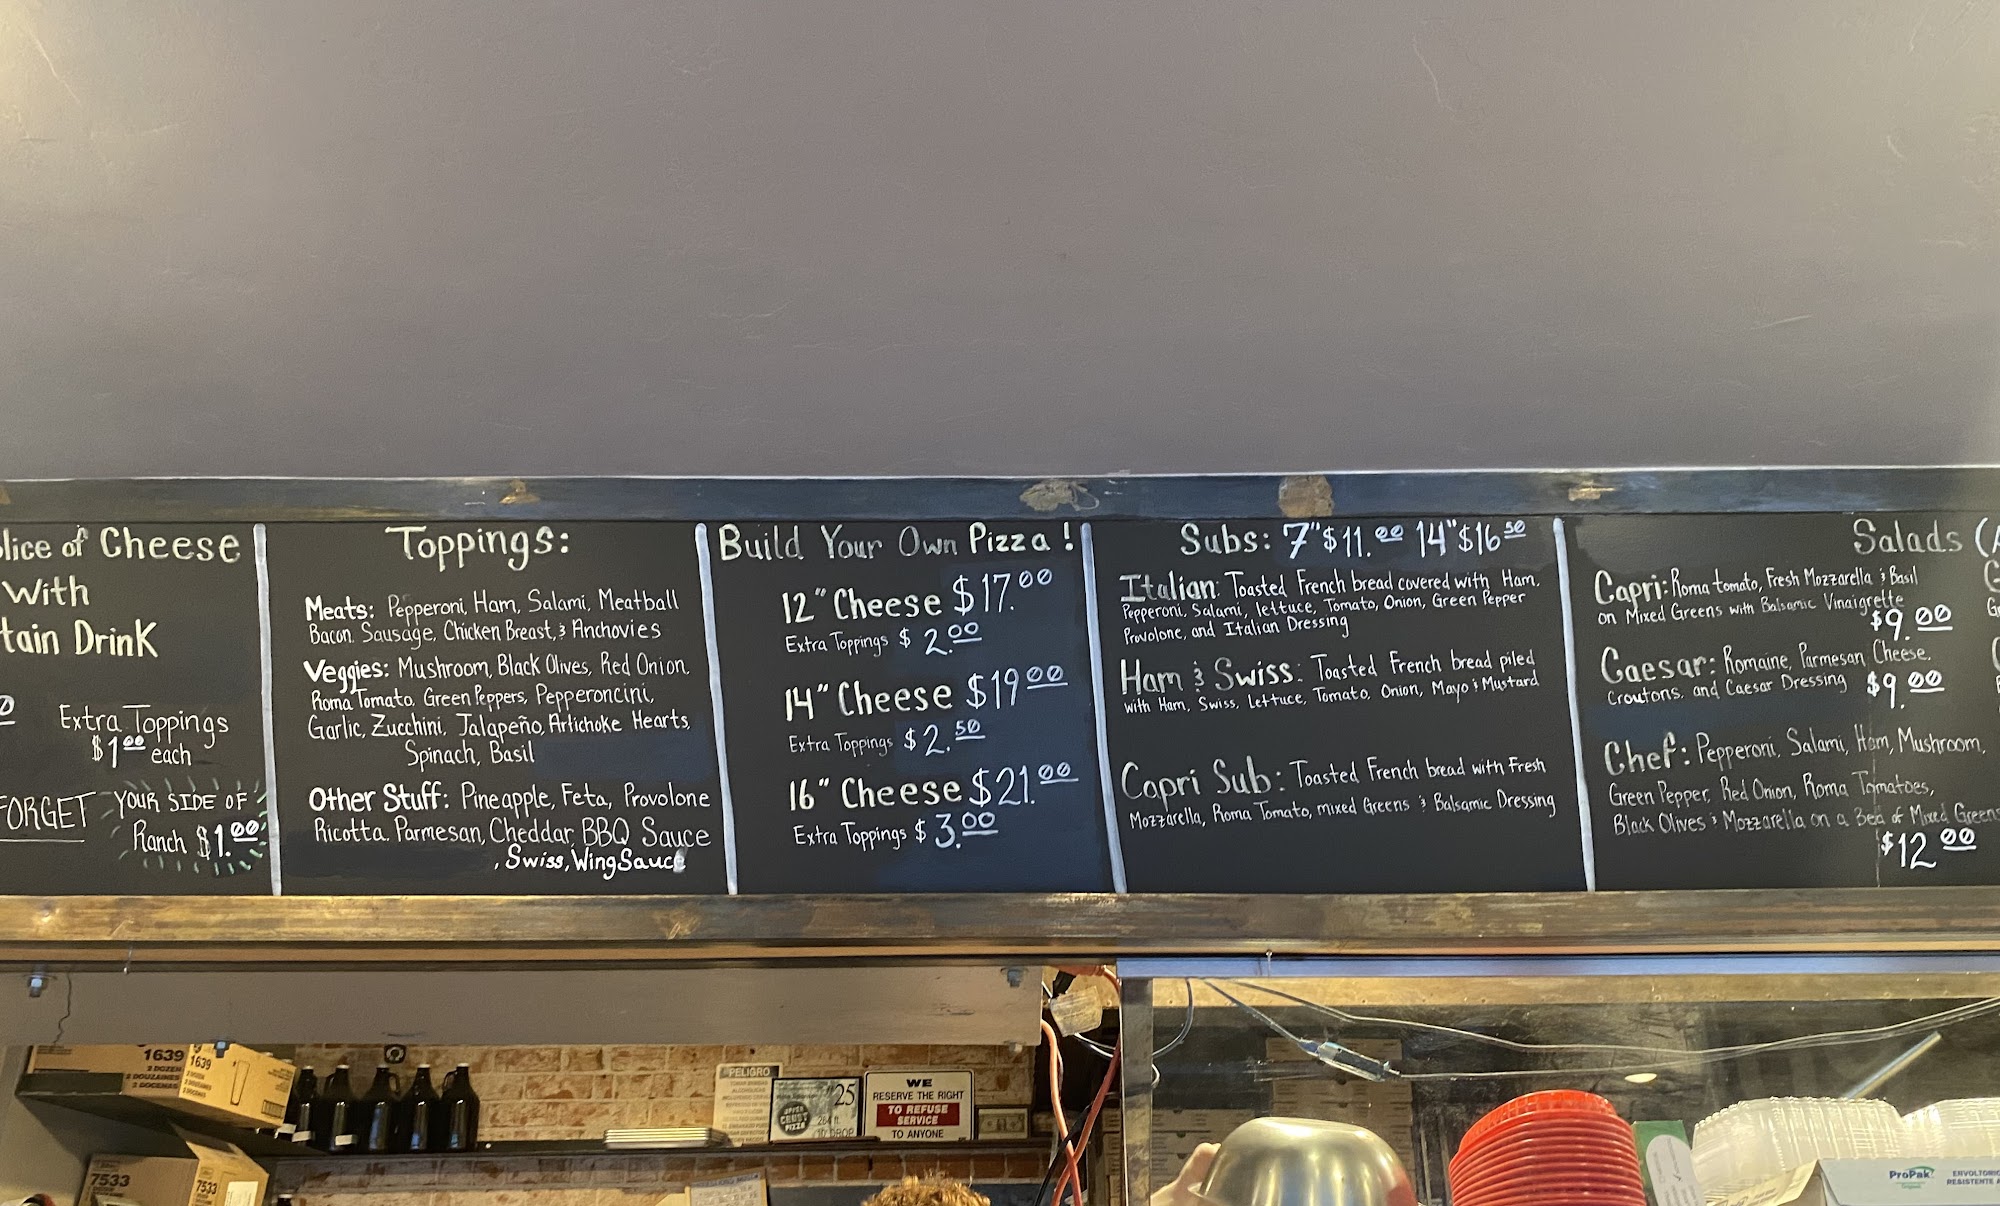 lice of Cheese
With
tain Drink
Extra Toppings
$1.00 each
FORGET YOUR SIDE OF
Ranch $1.00
Toppings:
Meats: Pepperoni, Ham, Salami, Meatball
Bacon. Sausage, Chicken Breast, & Anchovies
Veggies: Mushroom, Black Olives, Red Onion.
Roma Tomato. Green Peppers, Pepperoncini,
Garlic, Zucchini, Jalapeño, Artichoke Hearts,
Spinach, Basil
Other Stuff: Pineapple, Feta, Provolone
Ricotta. Parmesan, Cheddar, BBQ Sauce
, Swiss, Wing Sauce
Build Your Own Pizza!
12" Cheese $17.00
Extra Toppings $2.00
14" Cheese $19.00
Extra Toppings $2.50
16" Cheese $21.00
Extra Toppings $3.00
Subs: 7" $11.00 14" $16 50
Italian: Toasted French bread covered with Ham,
Pepperoni, Salami, lettuce, Tomato, Onion, Green Pepper
Provolone, and Italian Dressing
Ham & Swiss: Toasted French bread piled
with Ham, Swiss, Lettuce, Tomato, Onion, Mayo & Mustard
Capri Sub: Toasted French bread with Fresh
Mozzarella, Roma Tomato, mixed Greens & Balsamic Dressing
Salads (
Capri: Roma tomato, Fresh Mozzarella & Basil
on Mixed Greens with Balsamic Vinaigrette
$9.00
Caesar: Romaine, Parmesan Cheese,
Croutons, and Caesar Dressing $9.00
Chef: Pepperoni, Salami, Ham, Mushroom,
Green Pepper, Red Onion, Roma Tomatoes,
Black Olives & Mozzarella on a Bed of Mixed Greens
$12 00
1639
2 DOZEN
2 DOUZAINES
2 DOCENAS
1639
7533
7533
PELIGRO
25
UPPER
CRUST
PIZZA
WE
RESERVE THE RIGHT
TO REFUSE
SERVICE
TO ANYONE
ProPak